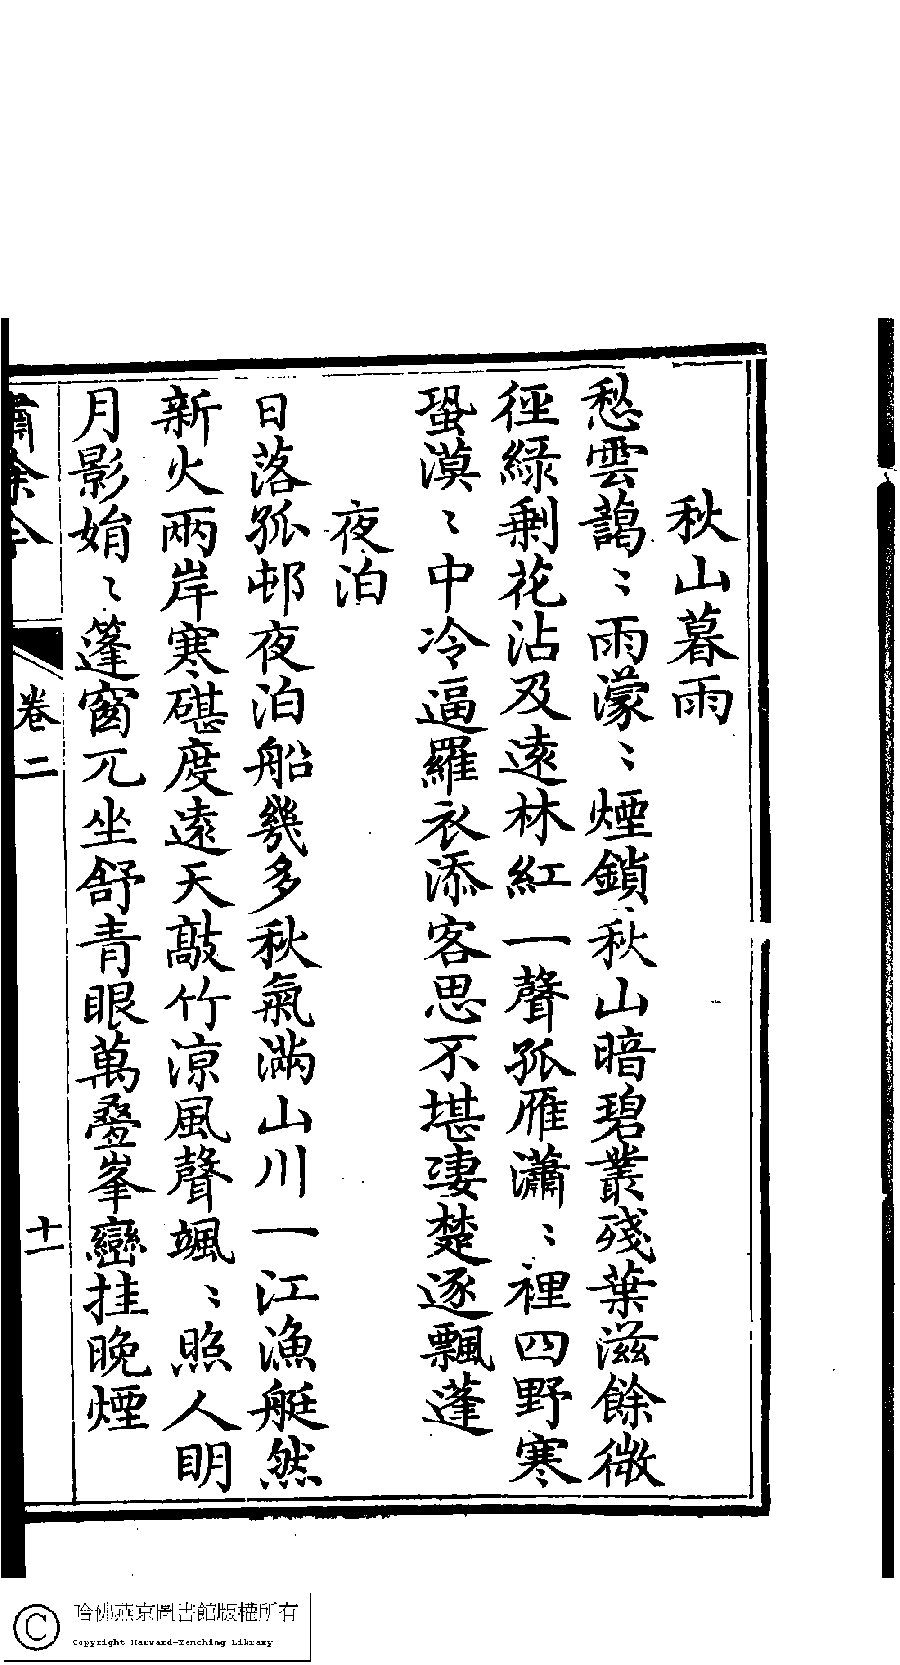 秋山暮雨
愁雲藹〻雨濛〻煙鎖秋山暗碧叢殘葉滋餘微
徑綠剩花沾及遠林紅一聲孤雁瀟〻裡四野寒
蛩漠〻中冷逼羅衣添客思不堪淒楚逐飄蓬
夜泊
日落孤邨夜泊船幾多秋氣滿山川一江漁艇然
新火兩岸寒碪度遠天敲竹涼風聲颯〻照人明
月影娟〻篷窗兀坐舒青眼萬疊峯巒挂晚煙
卷二
十一
哈佛燕京圖書館版權所有
Copyright Harvard-Yenching Library